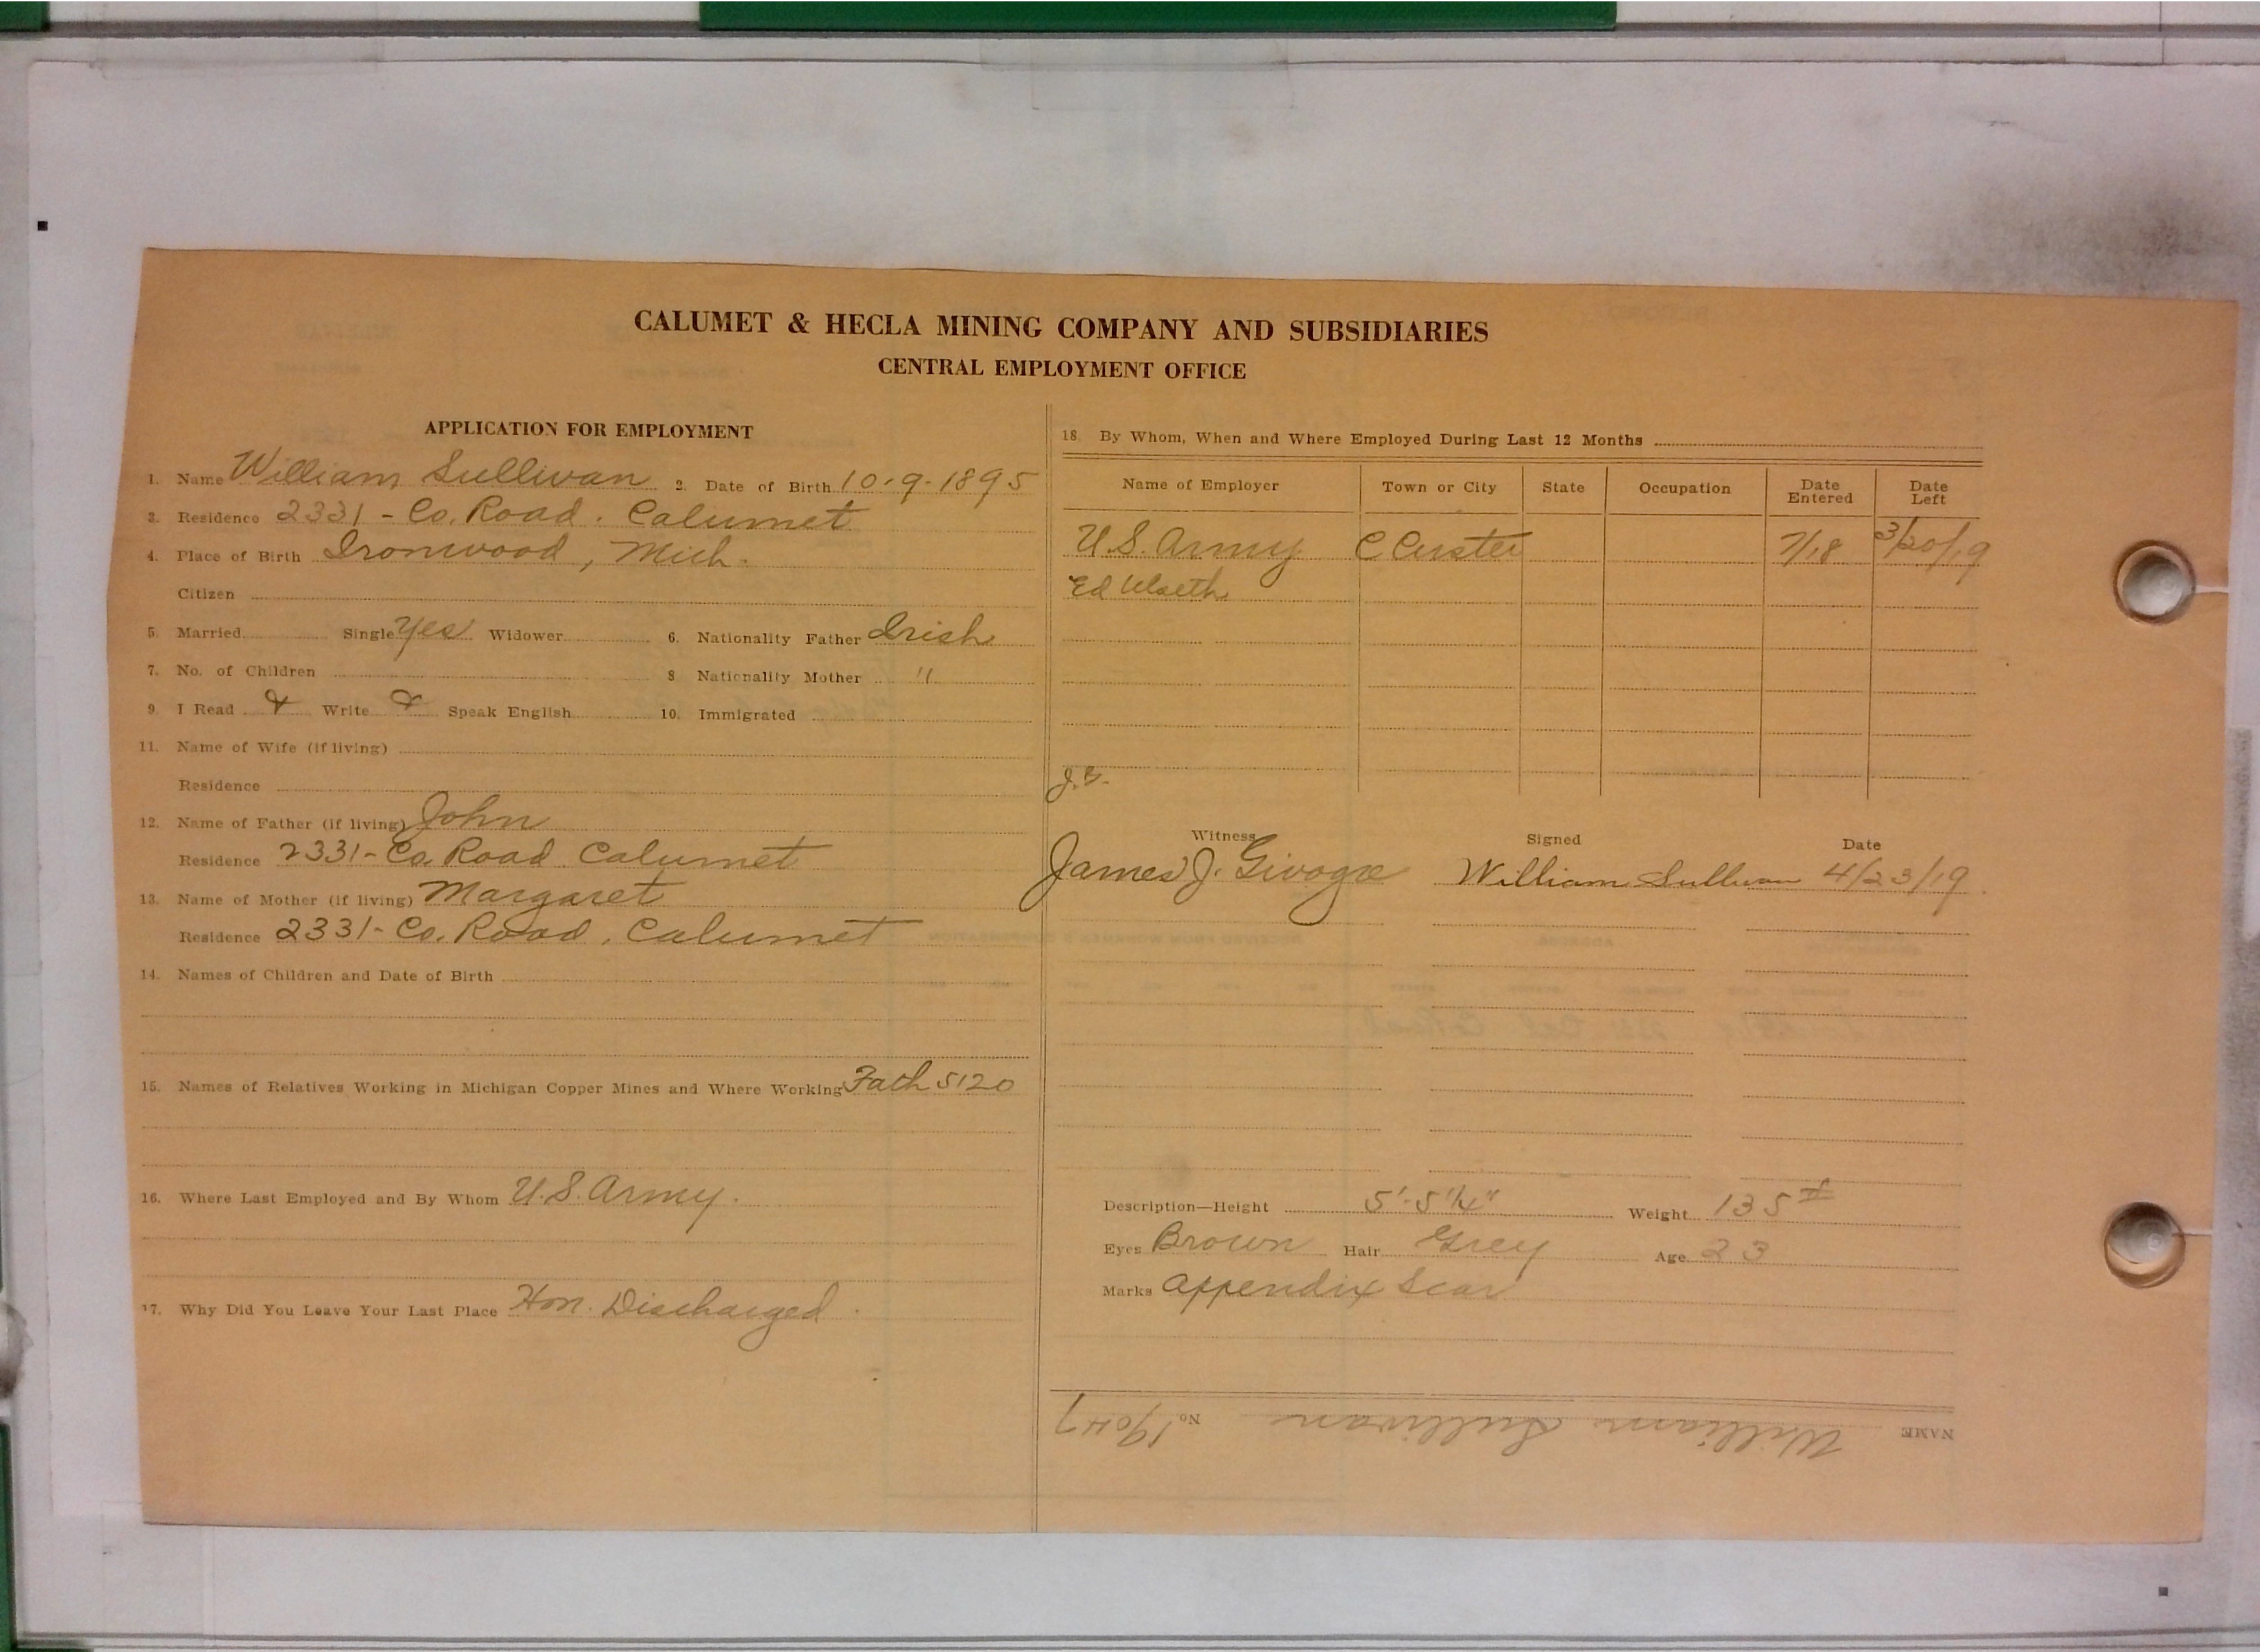 CALUMET & HECLA MINING COMPANY AND SUBSIDIARIES
CENTRAL EMPLOYMENT OFFICE
APPLICATION FOR EMPLOYMENT
1. Name William Sullivan 2. Date of Birth 10-9-1895
3. Residence 2331 - Co. Road. Calumet
4. Place of Birth Ironwood, Mich.
Citizen
5. Married Single Yes Widower 6. Nationality Father Irish
7. No. of Children 8 Nationality Mother "
9. I Read Write Speak English 10. Immigrated
11. Name of Wife (if living)
Residence
12. Name of Father (if living) John
Residence 2331- Co. Road Calumet
13. Name of Mother (if living) Margaret
Residence 2331- Co. Road, Calumet
14. Names of Children and Date of Birth
15. Names of Relatives Working in Michigan Copper Mines and Where Working Fath 5120
16. Where Last Employed and By Whom U.S. Army.
17. Why Did You Leave Your Last Place Hon. Discharged.
18. By Whom, When and Where Employed During Last 12 Months
Name of Employer Town or City State Occupation Date Entered Date Left
U.S. Army C Custer 7/18 3/20/19
Ed Ulseth
J.G.
Witness Signed Date
James J. William Sullivan 4/23/19
Description—Height 5'-5 1/4" Weight 135#
Eyes Brown Hair Grey Age 23
Marks Appendix Scar
NAME William Sullivan No. 19047